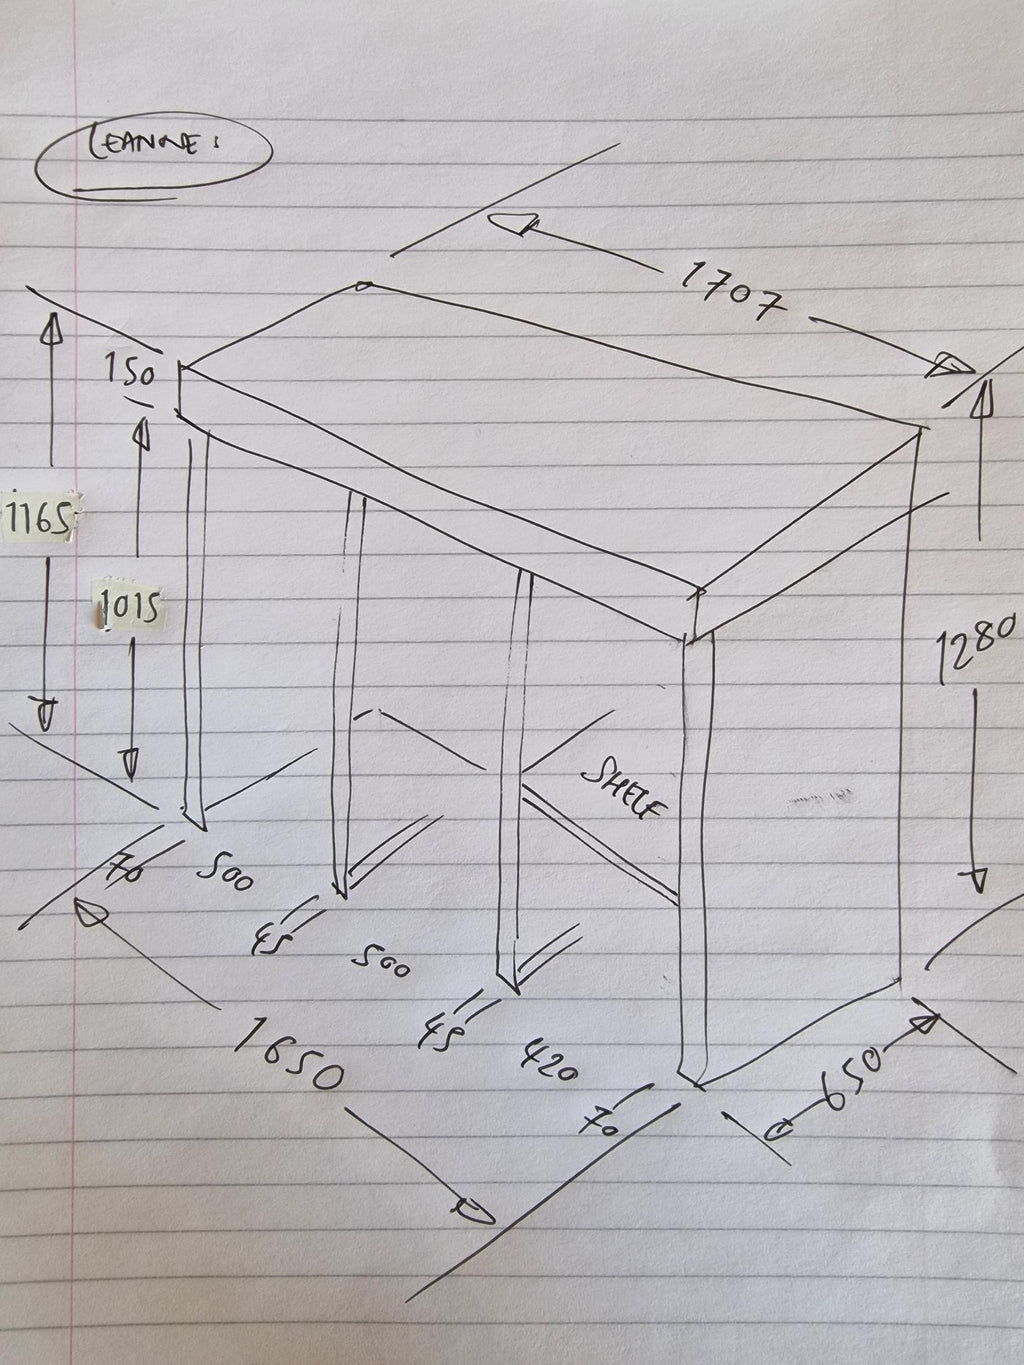 LEANNE:
1707
150
1165
1015
1280
SHELF
70
500
45
500
45
420
70
1650
650